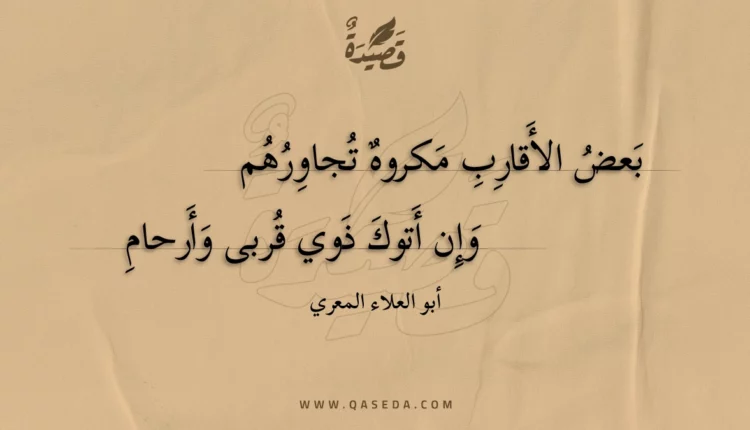 قَصِيْدَةٌ
بَعضُ الأَقارِبِ مَكروهٌ تُجاوِرُهُم
وَإِن أَتوكَ ذَوي قُربى وَأَرحامِ
أبو العلاء المعري
WWW.QASEDA.COM